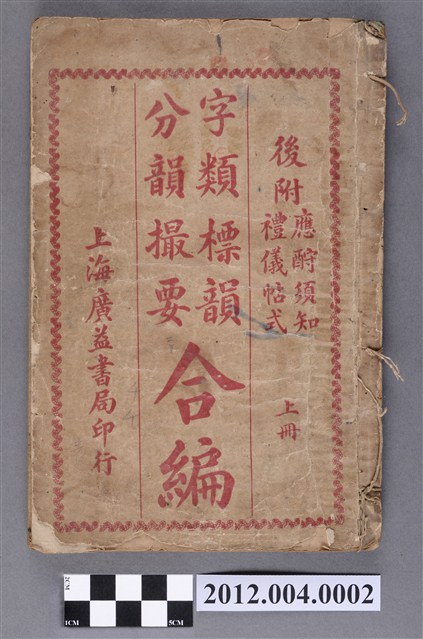 後附
應酧須知
禮儀帖式
上冊
字類標韻
分韻撮要
合編
上海廣益書局印行
2CM
1CM
5CM
2012.004.0002